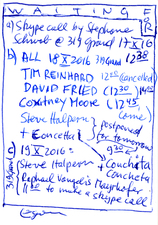 WAITING FOR
a) Skype call by Stephane
@ 319 Grand 17 X 16
b) ALL 18 X 2016 319 Grand 12:30
TIM REINHARD 12:15 (cancelled)
DAVID FRIED (12:30
Courtney Moore (12:45
Steve Halpern
+ Concetta
postponed for tomorrow
9:30
c) 19 X 2016:
Steve Halpern + Conchetta
Conchetta
Raphael Vangelis Mayrhofer
11:30 to make a skype call
319 Grand